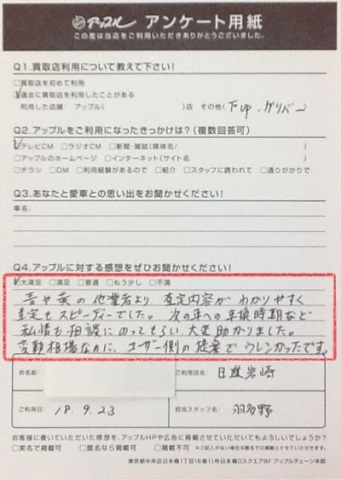 アップル アンケート用紙
この度は当店をご利用いただきありがとうございました。
Q1.買取店利用について教えて下さい!
□買取店を初めて利用
☑過去に買取店を利用したことがある
利用した店舗 アップル( )店 その他(Tup.ガリバー
Q2.アップルをご利用になったきっかけは?(複数回答可)
☑テレビCM □ラジオCM □新聞・雑誌(媒体名/ )
□アップルのホームページ □インターネット(サイト名/ )
□チラシ □DM □利用経験があるので □紹介 □スタッフに誘われて □通りがかりで
Q3.あなたと愛車との思い出をお聞かせください!
車名:
Q4.アップルに対する感想をぜひお聞かせください!
☑大満足 □満足 □普通 □もう少し □不満
の他業者より 査定内容が わかりやすく
査定もスピーディーでした。次の車への車検時期など
私情も相談にのってもらい 大変助かりました。
相場なのに、ユーザー側の提案でうれしかったです。
お名前
ご利用店名 日進岩崎
ご利用日 18.9.23
担当スタッフ名 羽多野
お客様に書いていただいた感想を、アップルHPや広告に掲載させていただいてもよろしいでしょうか?
□実名で掲載可 □匿名なら掲載可 □掲載不可
東京都中央区日本橋1丁目16番11号日本橋Dスクエア8F アップルチェーン本部